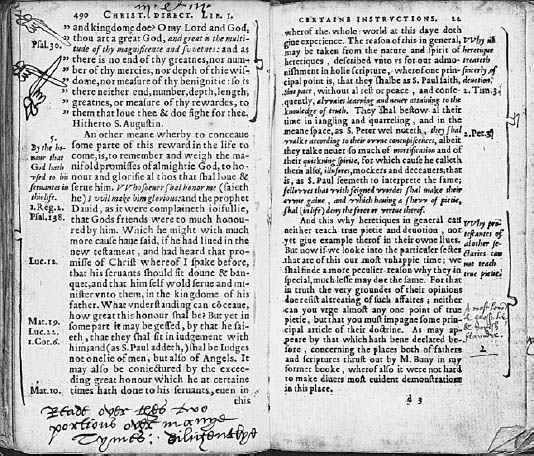 490 CHRIST. DIRECT. LIB. I.
„ and kingdome doe? O my Lord and God,
„ thou art a great God, and great is the multi-
Psal. 30. „ tude of thy magnificence and swetnes: and as
„ there is no end of thy greatnes, nor num-
„ ber of thy mercies, nor depth of this wis-
„ dome, nor measure of thy benignitie: so is
„ there neither end, number, depth, length,
„ greatnes, or measure of thy rewardes, to
„ them that loue thee & doe fight for thee.
Hitherto S. Augustin.
5. An other meane wherby to conceaue
By the ho- some parte of this reward in the life to
nour that come, is, to remember and weigh the ma-
God hath nifold promisses of almightie God, to ho-
vsed to his nour and glorifie al thos that shal loue &
seruantes in serue him. VVhosoeuer shal honour me (saieth
this life. he) I wil make him glorious: and the prophet
1. Reg. 2. Dauid, as it were complaineth ioifullie,
Psal. 138. that Gods friends were to much honou-
red by him. Which he might with much
more cause haue said, if he had liued in the
new testament, and had heard that pro-
Luc. 12. misse of Christ wherof I spake before,
that his seruants should sit doune & ban-
quet, and that him self wold serue and mi-
nister vnto them, in the kingdome of his
father. What vnderstanding can côceaue,
how great this honour shal be? But yet in
Mat. 19. some part it may be gessed, by that he sai-
Luc. 22. eth, that they shal sit in iudgement with
1. Cor. 6. him: and (as S. Paul addeth,) shal be Iudges
not onelie of men, but also of Angels. It
may also be coniectured by the excee-
ding great honour which he at certaine
Mat. 10. times hath done to his seruants, euen in
this
Reade over thes two
portions over manye
Tymes: diligentlye
CERTAYNE INSTRVCTIONS.
wherof the whole world at this daye doth
giue experience. The reason of this in general, VVhy no
may be taken from the nature and spirit of heretique
heretiques, described vnto vs for our admo- treateth
nishment in holie scripture, wherof one prin- sincerly of
cipal point is, that they shal be as S. Paul saith, deuotion.
sine pace, without al rest or peace, and conse- 2. Tim. 3.
quently, alvvaies learning and neuer attaining to the
knovvledge of truth. They shal bestow al their
time in iangling and quarreling, and in the
meane space, as S. Peter wel noteth, they shal 2. Pet. 3.
vvalke according to their ovvne concupiscences, albeit
they talke neuer so much of mortification and of
their quickning spirite, for which cause he calleth
them also, illusores, mockers and deceauers; that
is, as S. Paul seemeth to interprete the same,
fellovves that vvith feigned vvordes shal make their
ovvne gaine, and vvhich hauing a shevv of pietie,
shal (in life) deny the force or vertue therof.
And this why heretiques in general can VVhy pro-
neither teach true pietie and deuotion, nor testantes of
yet giue example therof in their owne liues. al other se-
But now if we looke into the particuler sectes ctaries can
that are of this our most vnhappie time; we not teach
shal finde a more peculier reason why they in true pietie.
special, much lesse may doe the same. For that
in truth the very groundes of their opinions
doe resist al treating of such affaires; neither
can you vrge almost any one point of true
pietie, but that you must impugne some prin-
cipal article of their doctrine. As may ap-
peare by that which hath bene declared be-
fore, concerning the places both of fathers
and scriptures thrust out by M. Buny in my
former booke, wherof also it were not hard
to make diuers most euident demonstrations
in this place.
d 3